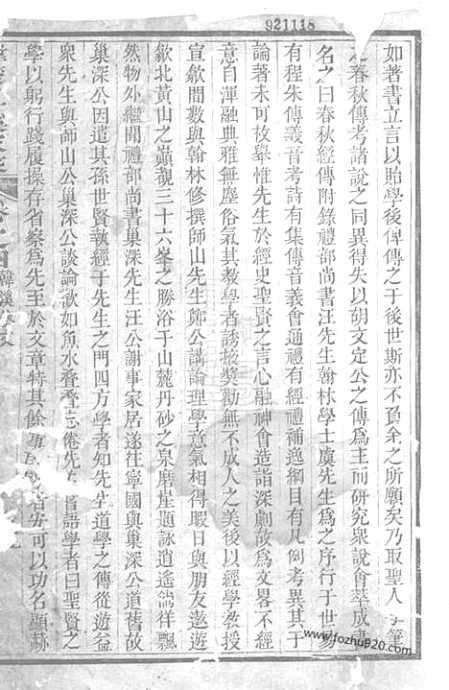 921118
如著書立言以貽學後俾傳之于後世斯亦不負余之所願矣乃取聖人手筆
之春秋傳考諸說之同異得失以胡文定公之傳爲主而研究衆說會萃成書
名之曰春秋經傳附錄禮部尚書汪先生翰林學士虞先生爲之序行于世易
有程朱傳義音考詩有集傳音義會通禮有經禮補逸綱目有凡例考異其于
論著未可枚舉惟先生於經史聖賢之言心融神會造詣深劇故爲文畧不經
意自渾融典雅無塵俗氣其教學者誘掖奬勸無不成人之美後以經學教授
宣歙間數與翰林修撰師山先生鄭公講論理學意氣相得暇日與朋友遨遊
歙北黃山之巔覩三十六峯之勝浴于山麓丹砂之泉磨崖題詠逍遙徜徉飄
然物外繼聞禮部尚書巢深先生汪公謝事家居遂往寧國與巢深公道舊故
巢深公因遣其孫世賢執經于先生之門四方學者知先生道學之傳從遊益
衆先生與師山公巢深公談論歡如魚水疊疊忘倦先生嘗語學者曰聖賢之
學以躬行踐履操存省察爲先至於文章特其餘事 者安可以功名顯赫
卷之
www.fozhu920.com